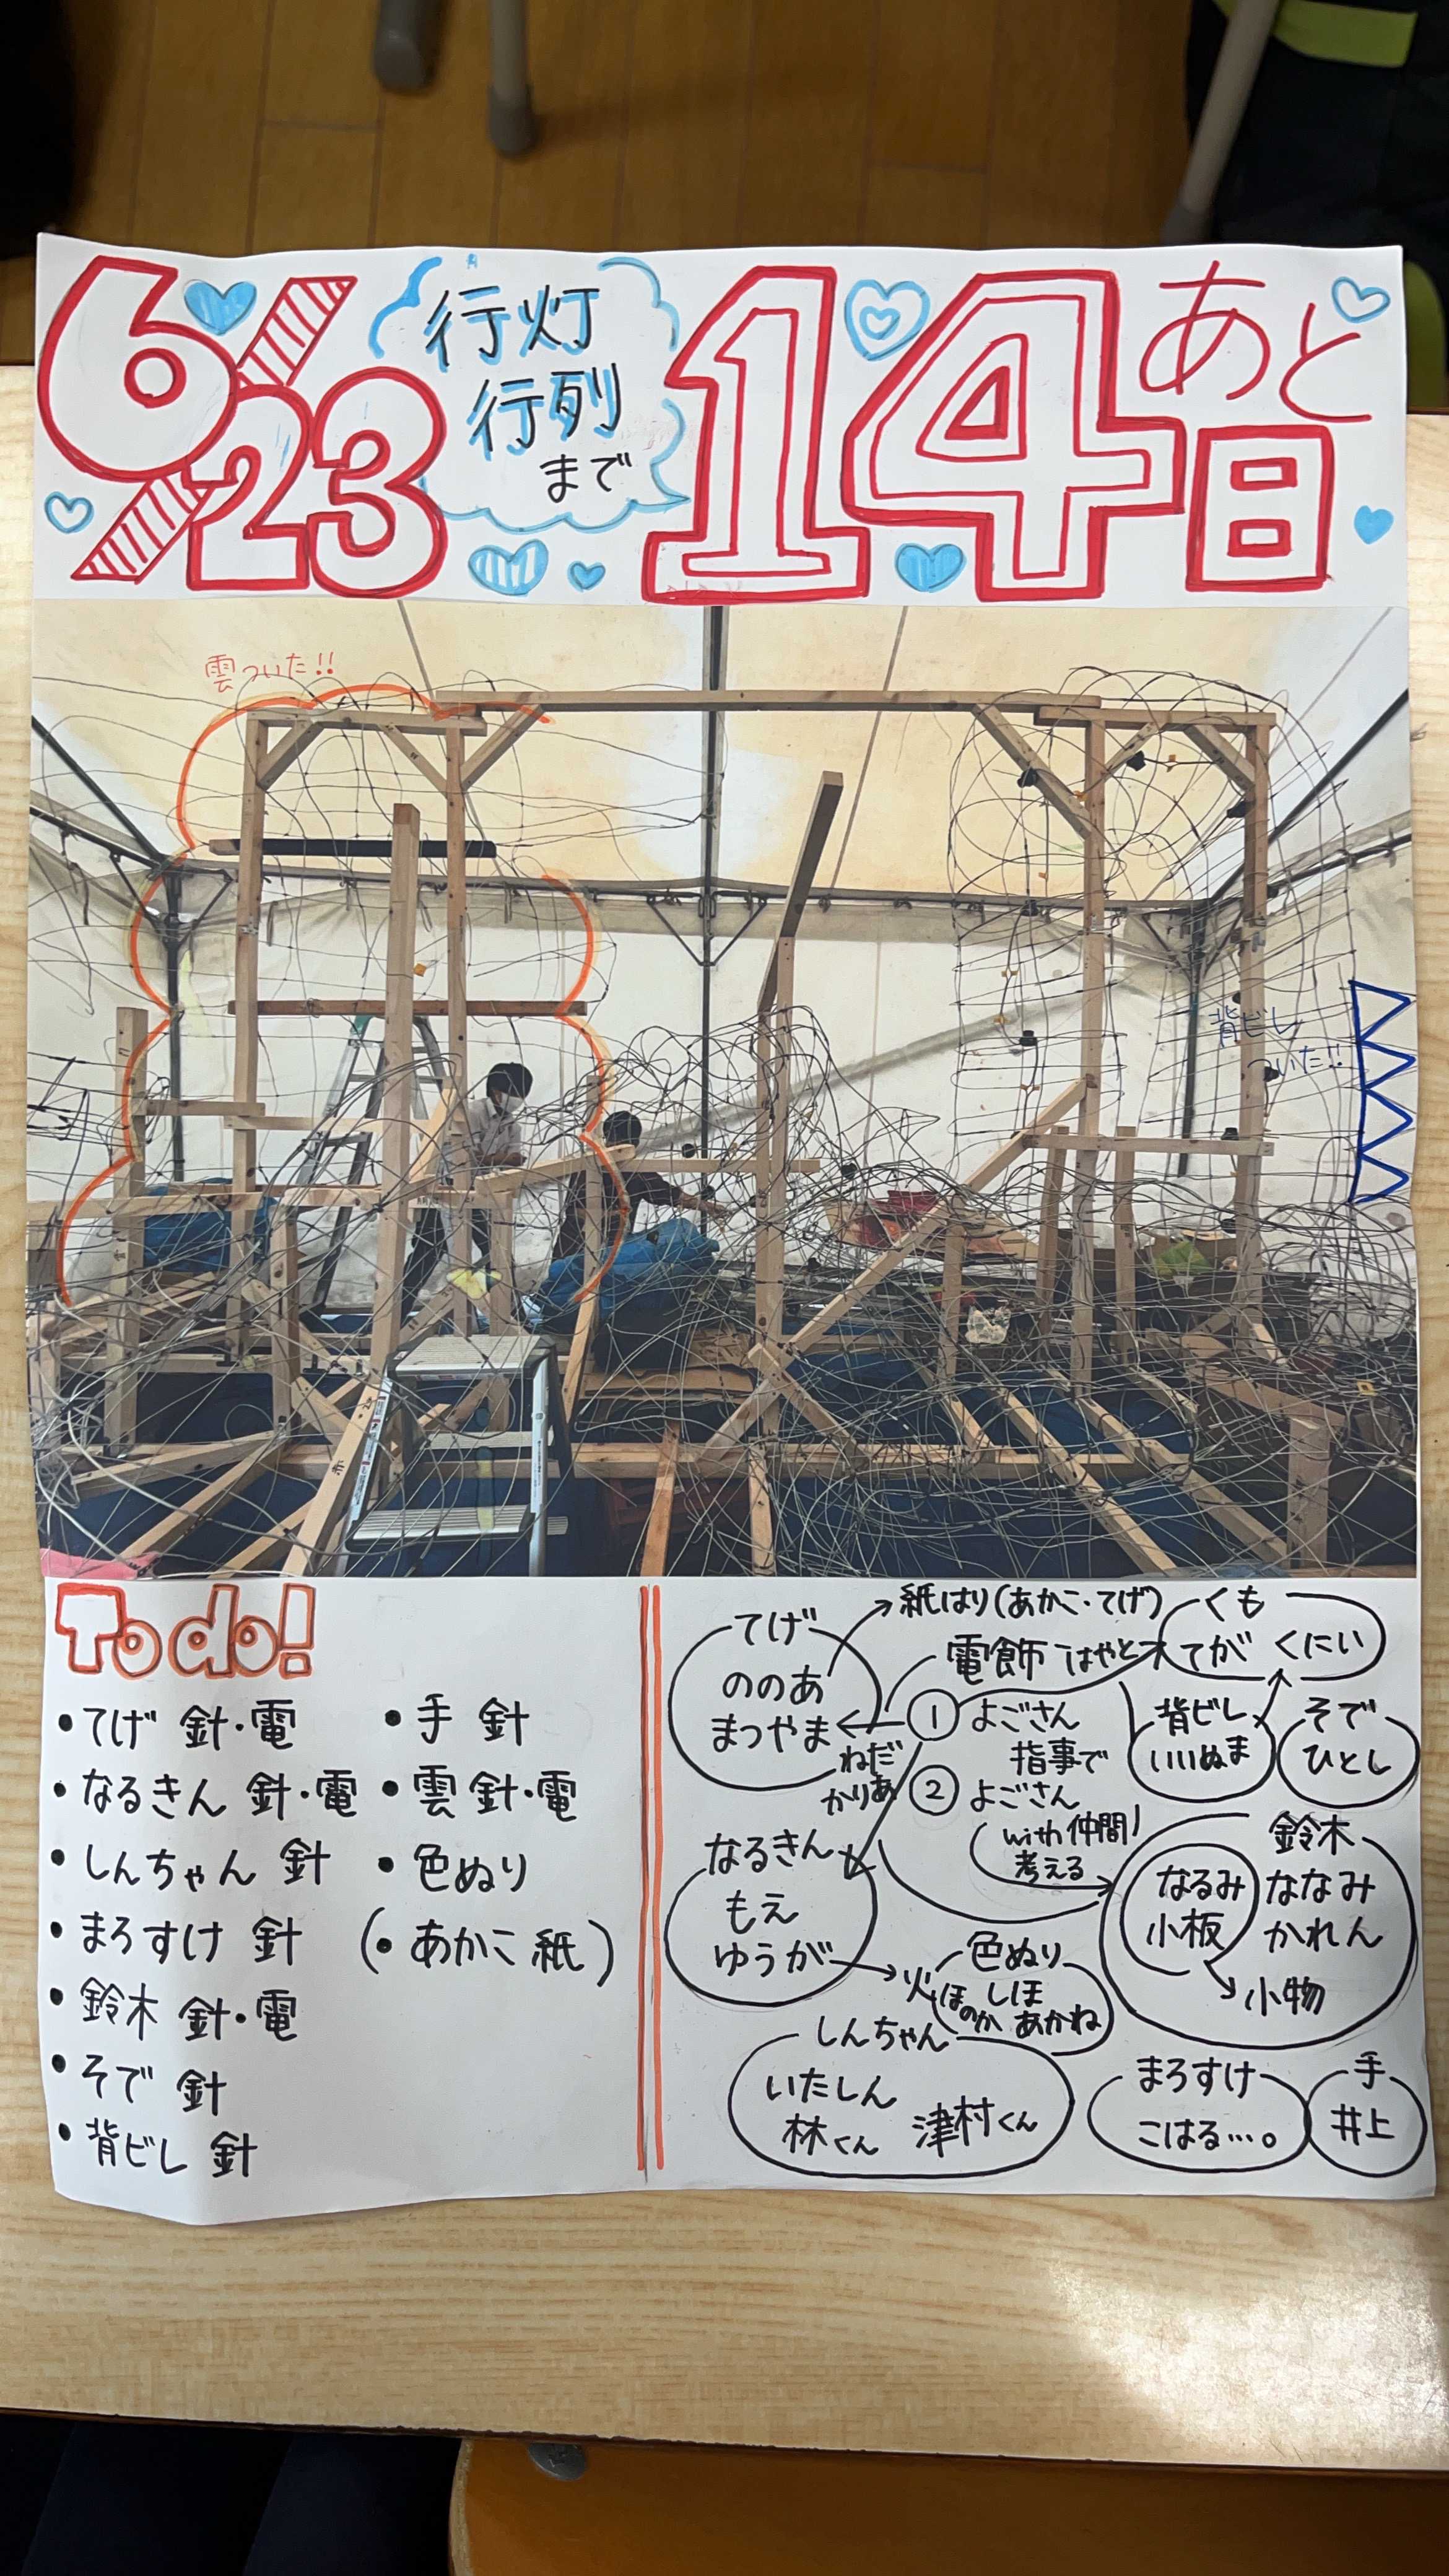 6/23
行灯
行列
まで
あと
14日
雲ついた!!
背ビレ
ついた!!
To do!
・てげ 針・電
・なるきん 針・電
・しんちゃん 針
・まろすけ 針
・鈴木 針・電
・そで 針
・背ビレ 針
・手 針
・雲 針・電
・色ぬり
(・あかこ 紙)
てげ
ののあ
まつやま
紙はり(あかこ・てげ)
電飾 はやと
くも
てが くにい
① よごさん
指事で
ねだ
かりあ
② よごさん
with 仲間
考える
背ビレ
いいぬま
そで
ひとし
なるきん
もえ
ゆうが
火
色ぬり
ほのか
しほ
あかね
鈴木
なるみ
小板
ななみ
かれん
小物
しんちゃん
いたしん
林くん 津村くん
まろすけ
こはる…。
手
井上